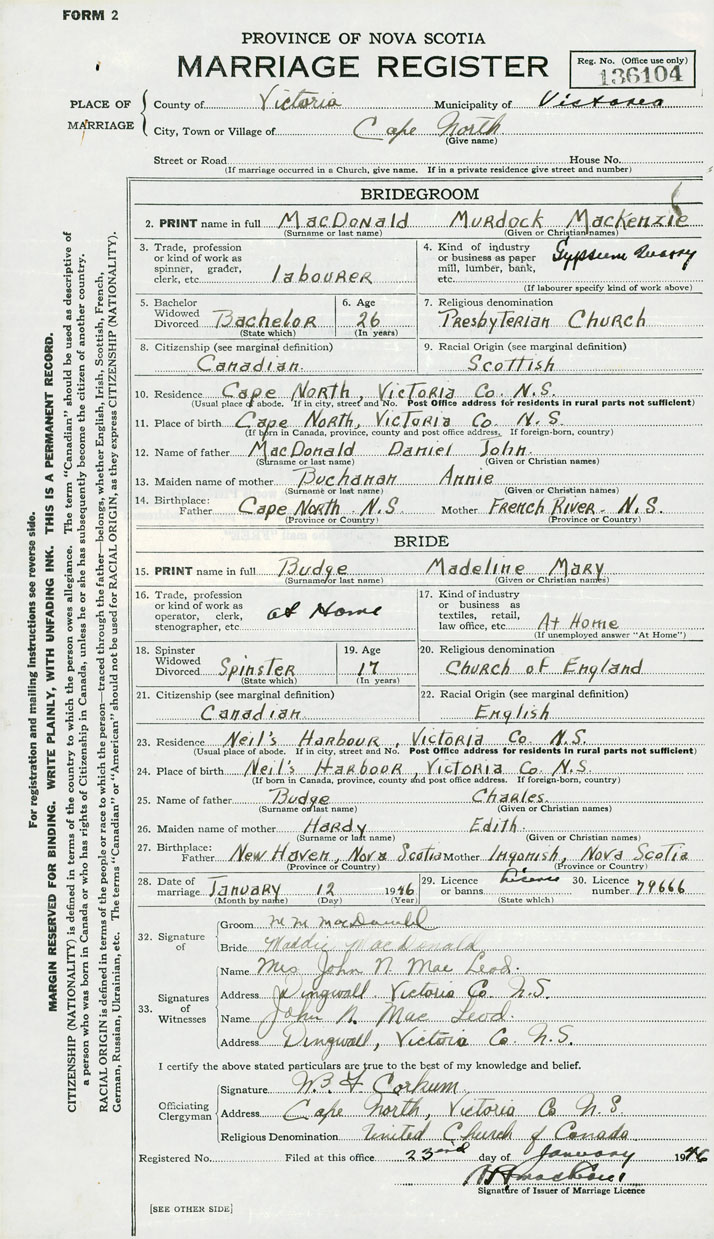 FORM 2
PROVINCE OF NOVA SCOTIA
MARRIAGE REGISTER
Reg. No. (Office use only)
136104
PLACE OF MARRIAGE
County of Victoria Municipality of Victoria
City, Town or Village of Cape North
(Give name)
Street or Road House No.
(If marriage occurred in a Church, give name. If in a private residence give street and number)
BRIDEGROOM
2. PRINT name in full MacDonald Murdock Mackenzie
(Surname or last name) (Given or Christian names)
3. Trade, profession or kind of work as spinner, grader, clerk, etc. labourer
4. Kind of industry or business as paper mill, lumber, bank, etc. Gypsum Quarry
(If labourer specify kind of work above)
5. Bachelor Widowed Divorced Bachelor
(State which)
6. Age 26
(In years)
7. Religious denomination
Presbyterian Church
8. Citizenship (see marginal definition)
Canadian
9. Racial Origin (see marginal definition)
Scottish
10. Residence Cape North, Victoria Co. N.S.
(Usual place of abode. If in city, street and No. Post Office address for residents in rural parts not sufficient)
11. Place of birth Cape North, Victoria Co. N.S.
(If born in Canada, province, county and post office address. If foreign-born, country)
12. Name of father MacDonald Daniel John
(Surname or last name) (Given or Christian names)
13. Maiden name of mother Buchanan Annie
(Surname or last name) (Given or Christian names)
14. Birthplace:
Father Cape North N.S Mother French River - N.S.
(Province or Country) (Province or Country)
BRIDE
15. PRINT name in full Budge Madeline Mary
(Surname or last name) (Given or Christian names)
16. Trade, profession or kind of work as operator, clerk, stenographer, etc. at Home
17. Kind of industry or business as textiles, retail, law office, etc. At Home
(If unemployed answer "At Home")
18. Spinster Widowed Divorced Spinster
(State which)
19. Age 17
(In years)
20. Religious denomination
Church of England
21. Citizenship (see marginal definition)
Canadian
22. Racial Origin (see marginal definition)
English
23. Residence Neil's Harbour, Victoria Co. N.S.
(Usual place of abode. If in city, street and No. Post Office address for residents in rural parts not sufficient)
24. Place of birth Neil's Harbour, Victoria Co. N.S.
(If born in Canada, province, county and post office address. If foreign-born, country)
25. Name of father Budge Charles.
(Surname or last name) (Given or Christian names)
26. Maiden name of mother Hardy Edith
(Surname or last name) (Given or Christian names)
27. Birthplace:
Father New Haven, Nova Scotia Mother Ingonish, Nova Scotia
(Province or Country) (Province or Country)
28. Date of marriage January 12 1946
(Month by name) (Day) (Year)
29. Licence or banns License
(State which)
30. Licence number 79666
32. Signature of
Groom M M MacDonald
Bride Maddie MacDonald
33. Signatures of Witnesses
Name Mrs John N. Mac Leod.
Address Dingwall Victoria Co N.S.
Name John N. Mac Leod.
Address Dingwall, Victoria Co. N.S.
I certify the above stated particulars are true to the best of my knowledge and belief.
Officiating Clergyman
Signature W. F. Corkum
Address Cape North, Victoria Co N.S.
Religious Denomination United Church of Canada
Registered No. Filed at this office 23rd day of January 1946
Signature of Issuer of Marriage Licence
[SEE OTHER SIDE]
For registration and mailing instructions see reverse side.
MARGIN RESERVED FOR BINDING. WRITE PLAINLY, WITH UNFADING INK. THIS IS A PERMANENT RECORD.
CITIZENSHIP (NATIONALITY) is defined in terms of the country to which the person owes allegiance. The term "Canadian" should be used as descriptive of
a person who was born in Canada or who has rights of Citizenship in Canada, unless he or she has subsequently become the citizen of another country.
RACIAL ORIGIN is defined in terms of the people or race to which the person—traced through the father—belongs, whether English, Irish, Scottish, French,
German, Russian, Ukrainian, etc. The terms "Canadian" or "American" should not be used for RACIAL ORIGIN, as they express CITIZENSHIP (NATIONALITY).